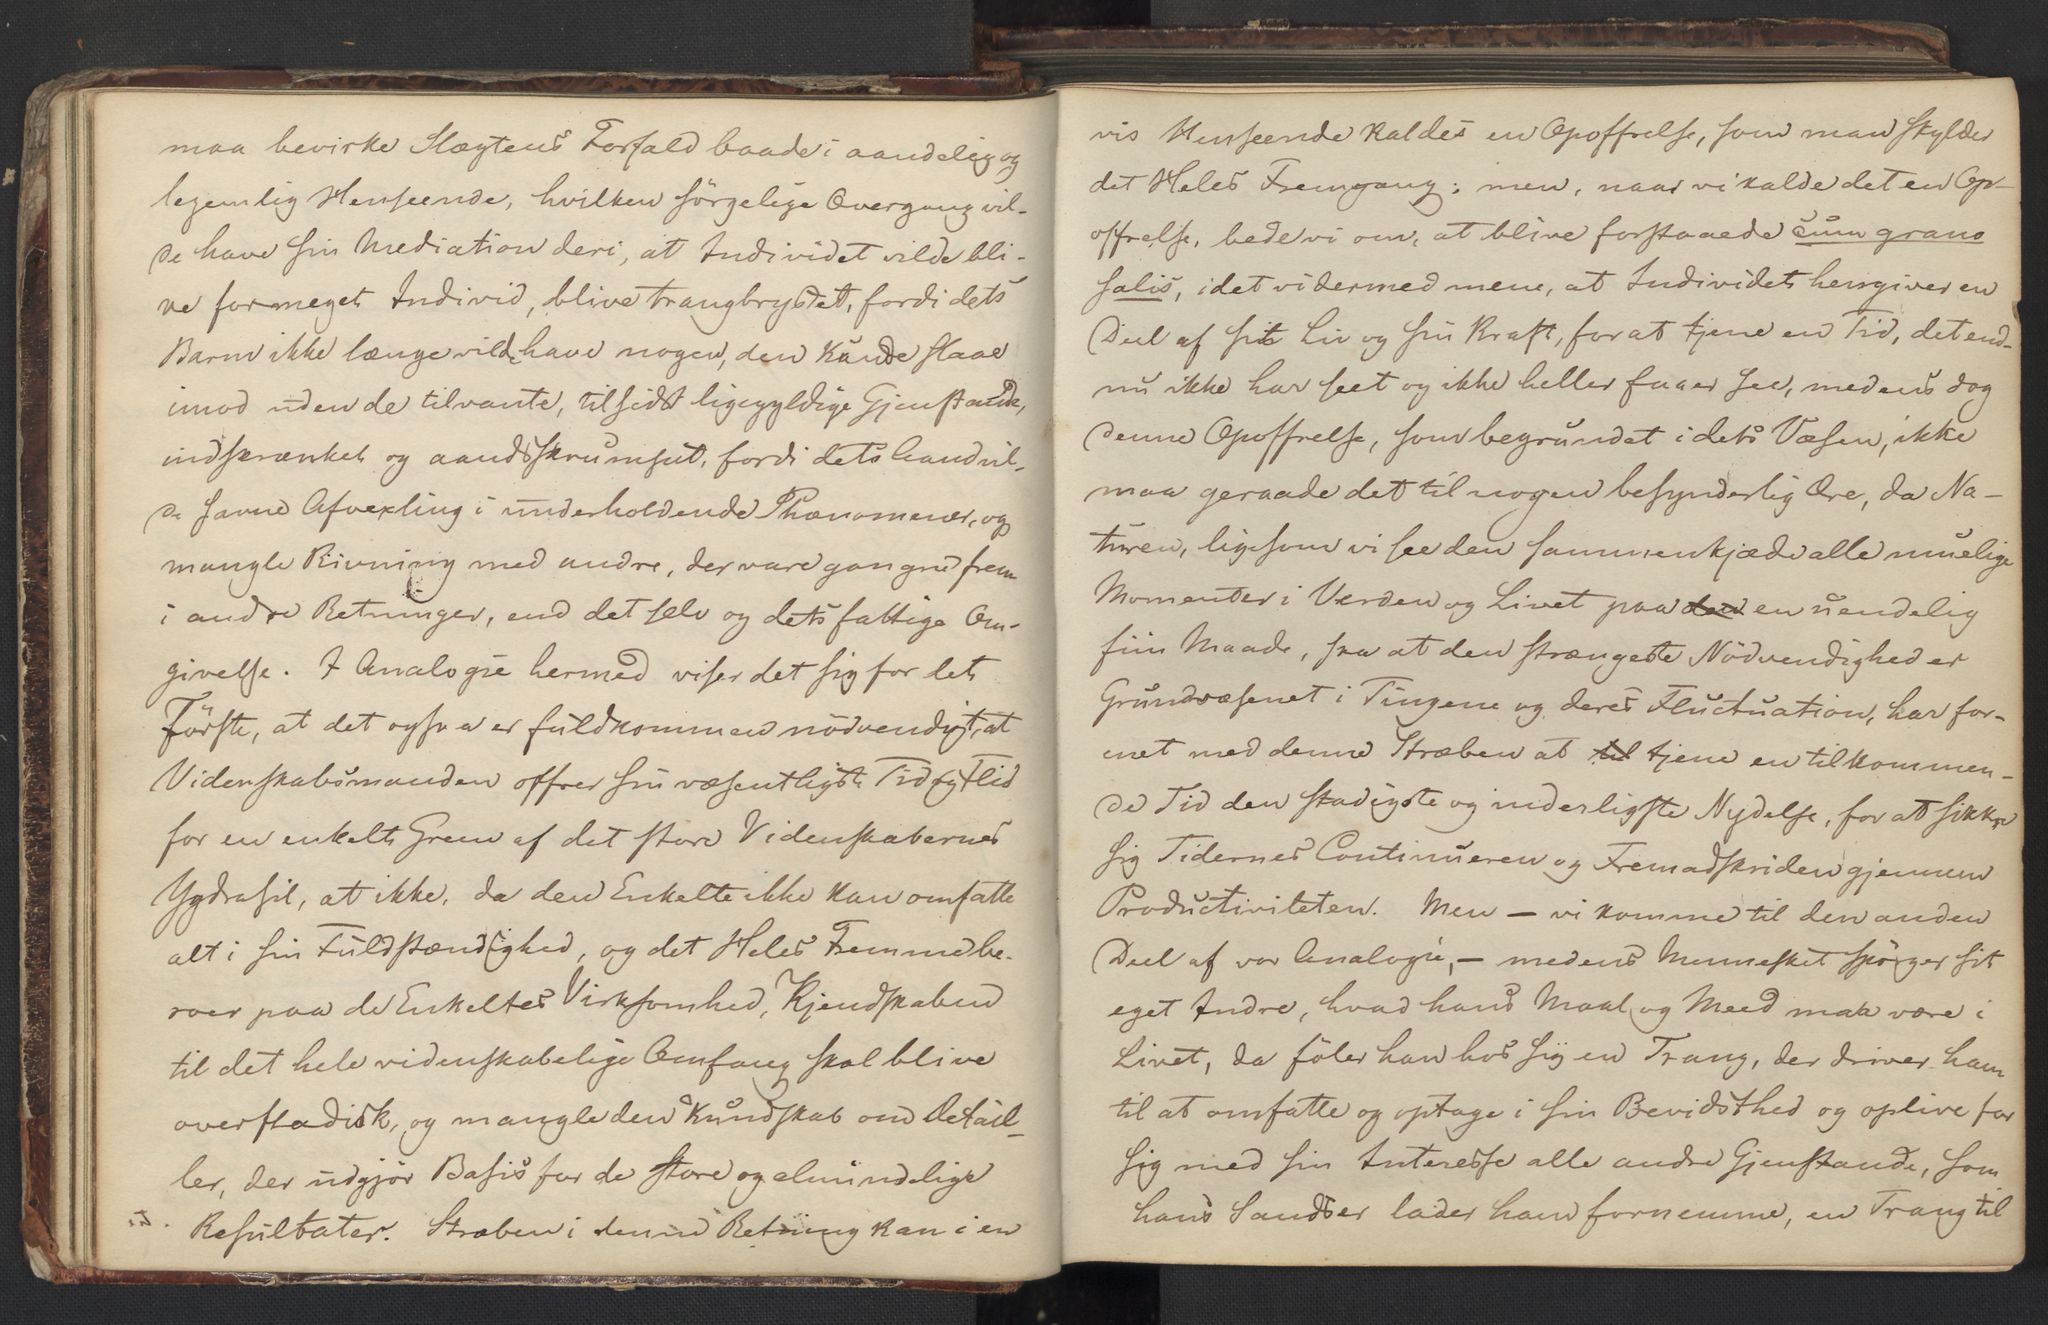 maa bevirke Slægtens Forfald baade i aandelig og
legemlig Henseende, hvilken sörgelige Overgang vil-
de have sin Mediation deri, at Individet vilde bli-
ve formeget Individ, blive trangbrystet, fordi dets
Barm ikke længe vilde have nogen, den kunde slaae
imod uden de tilvante, tilsidst ligegyldige Gjenstande,
indskrænket og aandsskrumpet, fordi dets Aand vil-
de savne Afvexling i underholdende Phænomener, og
mangle Rivning med andre, der vare gangne frem
i andre Retninger, end det selv og dets fattige Om-
givelse. I Analogie hermed viser det sig for det
Förste, at det ogsaa er fuldkommen nödvendigt, at
Videnskabsmanden offrer sin væsentligste Tid og Flid
for en enkelt Green af det store Videnskabernes
Ygdrasil, at ikke, da den Enkelte ikke kan omfatte
alt i sin Fuldstændighed, og det Heles Fremme be-
roer paa de Enkeltes Virksomhed, Kjendskaben
til det hele videnskabelige Omfang skal blive
overfladisk, og mangle den Kundskab om Detail-
ler, der udgjör Basis for de store og almindelige
Resultater. Stræben i denne Retning kan i en
vis Henseende kaldes en Opoffrelse, som man skylder
det Heles Fremgang; men, naar vi kalde det en Op-
offrelse, bede vi om, at blive forstaaede cum grano
salis, idet vi dermed mene, at Individet hengiver en
Deel af sit Liv og sin Kraft, for at tjene en Tid, det end-
nu ikke har seet og ikke heller faaer see, medens dog
denne Opoffrelse, som begrundet i dets Væsen, ikke
maa geraade det til nogen besynderlig Ære, da Na-
turen, ligesom vi see den sammenkjæde alle muelige
Momenter i Verden og Livet paa den en uendelig
fiin Maade, saa at den strængeste Nödvendighed er
Grundvæsenet i Tingene og deres Fluctuation, har for-
enet med denne Stræben at til tjene en tilkommen-
de Tid den stadigste og inderligste Nydelse, for at sikkre
sig Tidernes Continueren og Fremadskriden gjennem
Productiviteten. Men — vi komme til den anden
Deel af vor Analogie, — medens Mennesket spörger sit
eget Indre, hvad hans Maal og Meed maa være i
Livet, da föler han hos sig en Trang, der driver ham
til at omfatte og optage i sin Bevidsthed og oplive for
sig med sin Interesse alle andre Gjenstande, som
hans Sandser lader ham fornemme, en Trang til